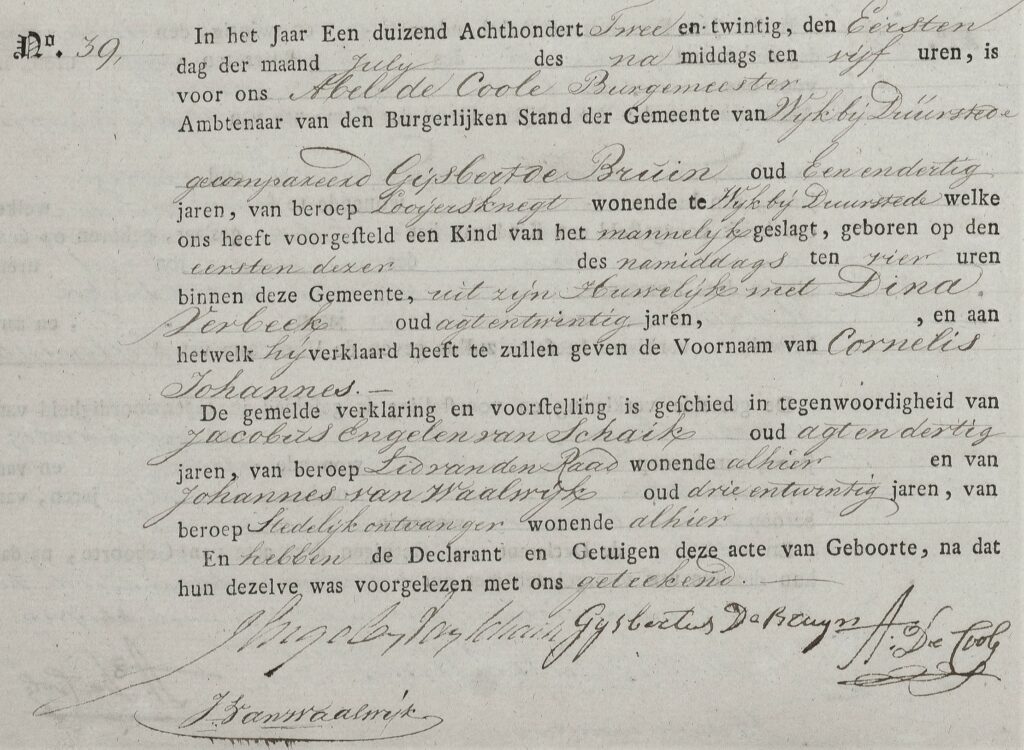 No. 39,
In het Jaar Een duizend Achthondert Twee en twintig, den Eersten
dag der maand July des na middags ten vijf uren, is
voor ons Abel de Coole Burgemeester
Ambtenaar van den Burgerlijken Stand der Gemeente van Wijk bij Duurstede
gecompareerd Gijsbert de Bruin oud Een en dertig
jaren, van beroep Looijersknegt wonende te Wijk bij Duurstede welke
ons heeft voorgesteld een Kind van het mannelijk geslagt, geboren op den
eersten dezer des namiddags ten vier uren
binnen deze Gemeente, uit zijn Huwelijk met Dina
Verbeek oud agt en twintig jaren, , en aan
hetwelk hij verklaard heeft te zullen geven de Voornaam van Cornelis
Johannes.—
De gemelde verklaring en voorstelling is geschied in tegenwoordigheid van
Jacobus Engelen van Schaik oud agt en dertig
jaren, van beroep Lid van den Raad wonende alhier en van
Johannes van Waalwijk oud drie entwintig jaren, van
beroep Stedelijk ontvanger wonende alhier
En hebben de Declarant en Getuigen deze acte van Geboorte, na dat
hun dezelve was voorgelezen met ons geteekend.
Gijsbertus De Bruyn A. De Coole
J Van Waalwijk